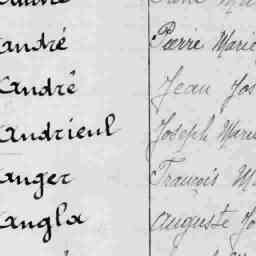 andré Pierre Marie
andré Jean Jos
andrieul Joseph Marie
anger François M
angla Auguste Jo